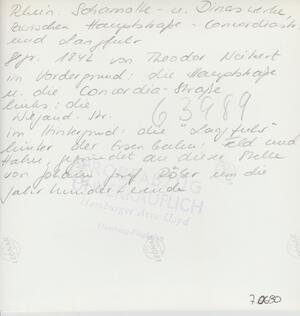 Rhein. Schamotte- u. Dinaswerke,
zwischen Hauptstraße - Concordiastr.
und Langfuhr
gegr. 1872 von Theodor Neizert
im Vordergrund: die Hauptstraße
u. die Concordia-Straße
links: die
Wiegand-Str.
63989
im Hintergrund: die "Langfuhr"
hinter der Eisenbahn: Feld und
Hahn, gegründet an dieser Stelle
von Johann Josef um die
Jahrhundertwende
UNVERKÄUFLICH
Hamburger Aero-Lloyd
70680